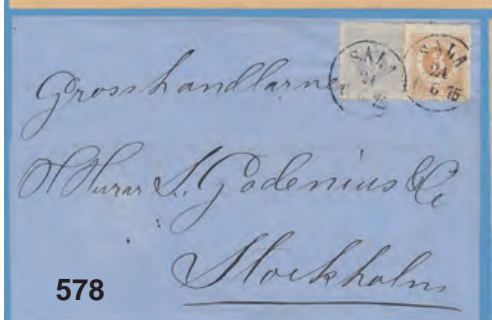 SALA
24
6 75
SALA
24
6 75
Grosshandlarne
Herrar S. Godenius & Co
Stockholm
578